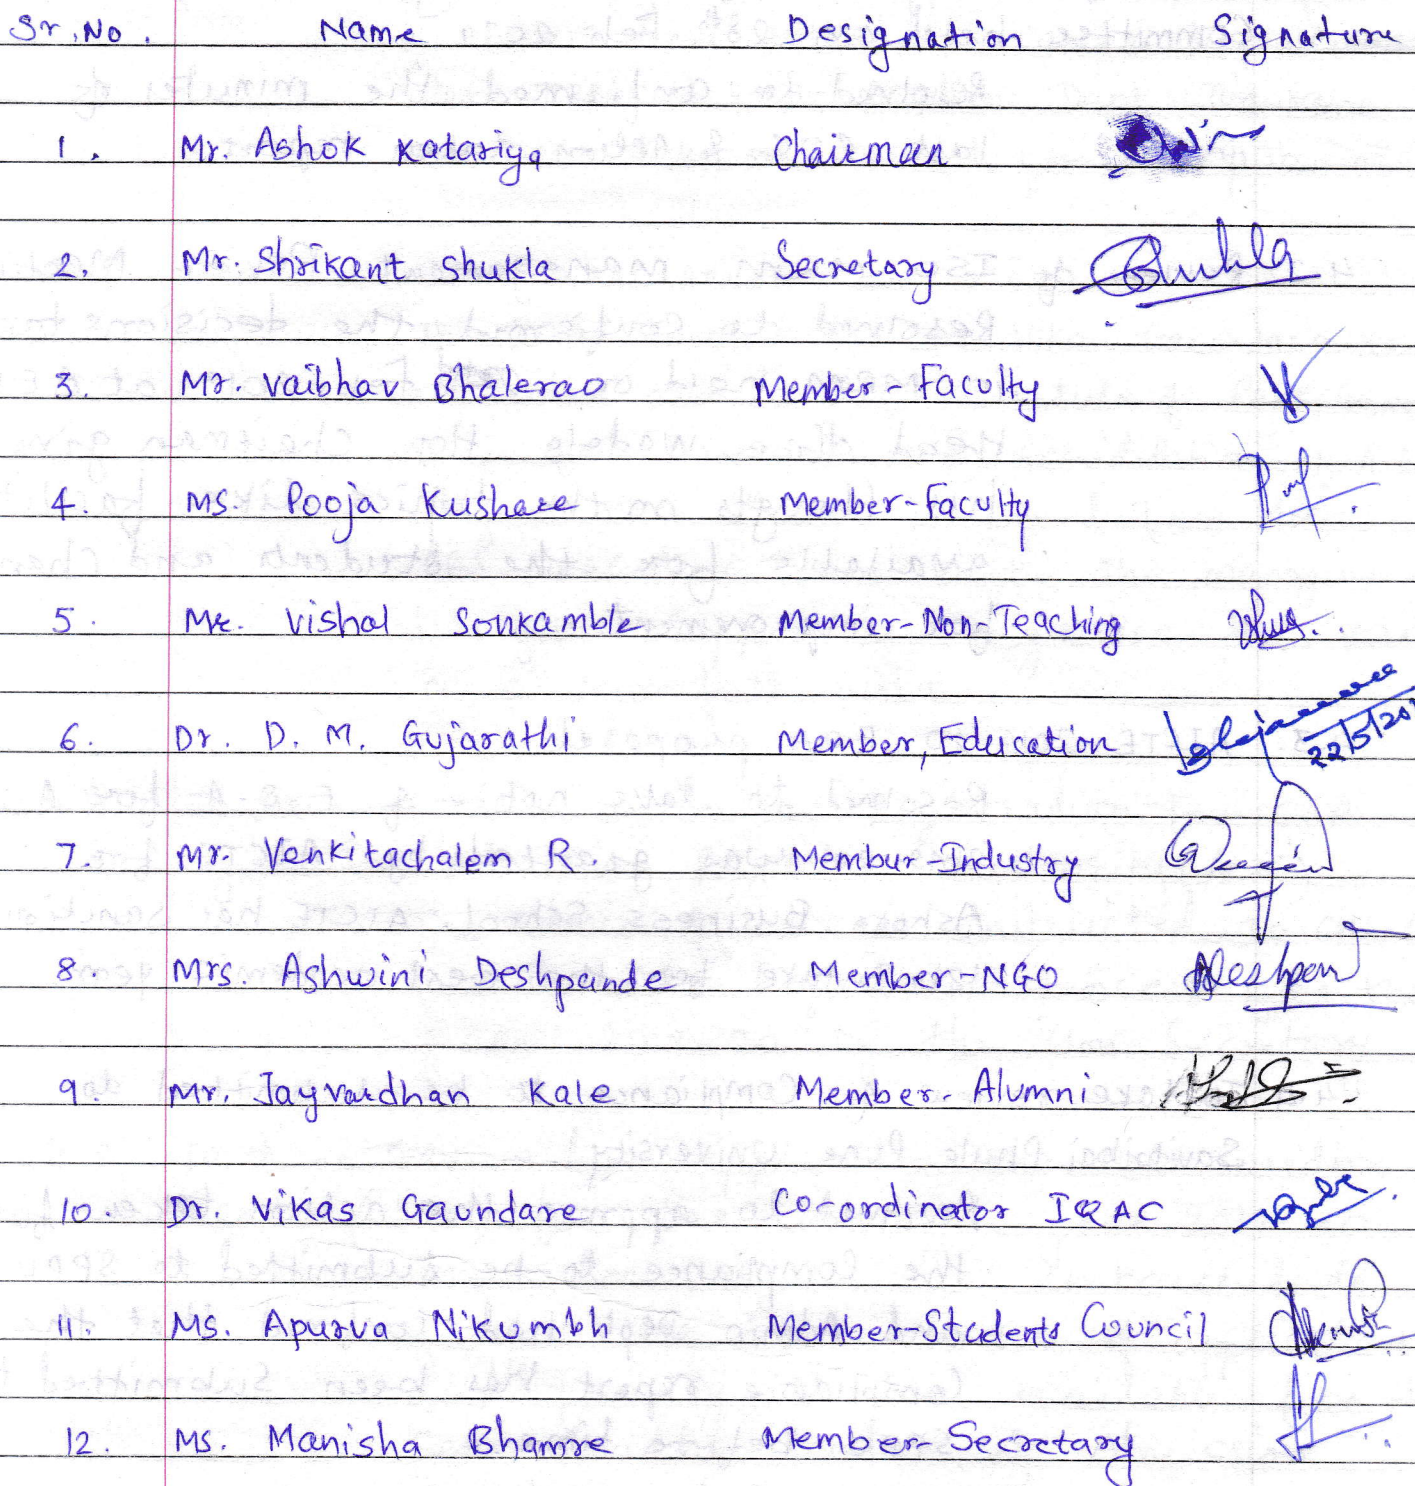 Sr. No. Name Designation Signature
1. Mr. Ashok Katariya Chairman
2. Mr. Shrikant Shukla Secretary Shukla
3. Mr. Vaibhav Bhalerao Member - Faculty
4. Ms. Pooja Kushare Member - Faculty
5. Mr. Vishal Sonkamble Member - Non - Teaching
6. Dr. D. M. Gujarathi Member, Education 22/5/20
7. Mr. Venkitachalam R. Membur - Industry
8. Mrs. Ashwini Deshpande Member - NGO
9. Mr. Jayvardhan Kale Member - Alumni
10. Dr. Vikas Gaundare Co-ordinator IQAC
11. Ms. Apurva Nikumbh Member - Students Council
12. Ms. Manisha Bhamre Member - Secretary